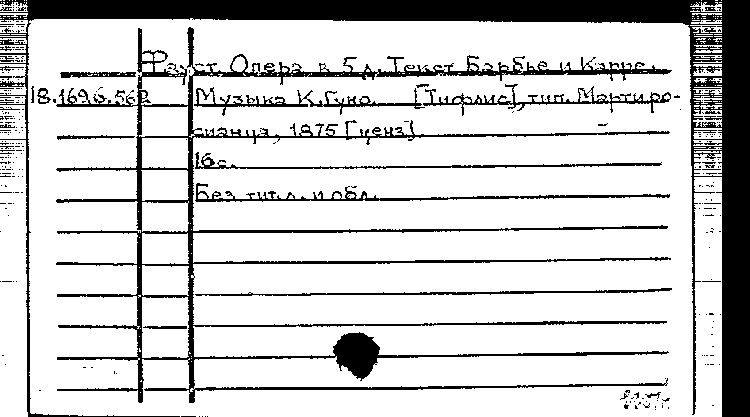 Фауст. Опера в 5 д. Текст Барбье и Карре.
18.169.6.562 Музыка К. Гуно. [Тифлис], тип. Мартиро-
сианца, 1875 [ценз].
16с.
Без тит. л. и обл.